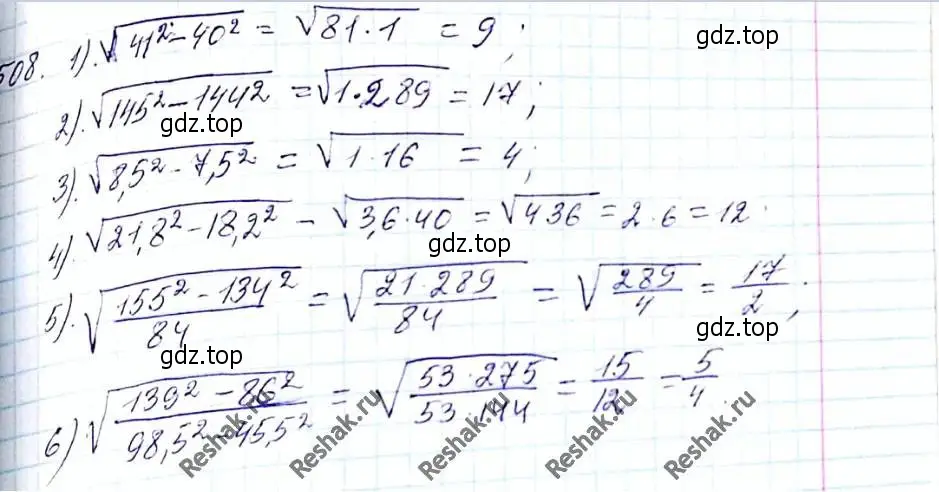 508. 1). √41² - 40² = √81 · 1 = 9;
gdz.top
2). √145² - 144² = √1 · 289 = 17;
gdz.top
3). √8,5² - 7,5² = √1 · 16 = 4;
4). √21,8² - 18,2² - √3,6 · 40 = √4 36 = 2 · 6 = 12.
gdz.top
5). √(155² - 134²)/84 = √(21 · 289)/84 = √289/4 = 17/2;
gdz.top
gdz.top
6) √(139² - 86²)/(98,5² - 45,5²) = √(53 · 275)/(53 · 144) = 15/12 = 5/4.
Reshak.ru
Reshak.ru
Reshak.ru
Reshak.ru